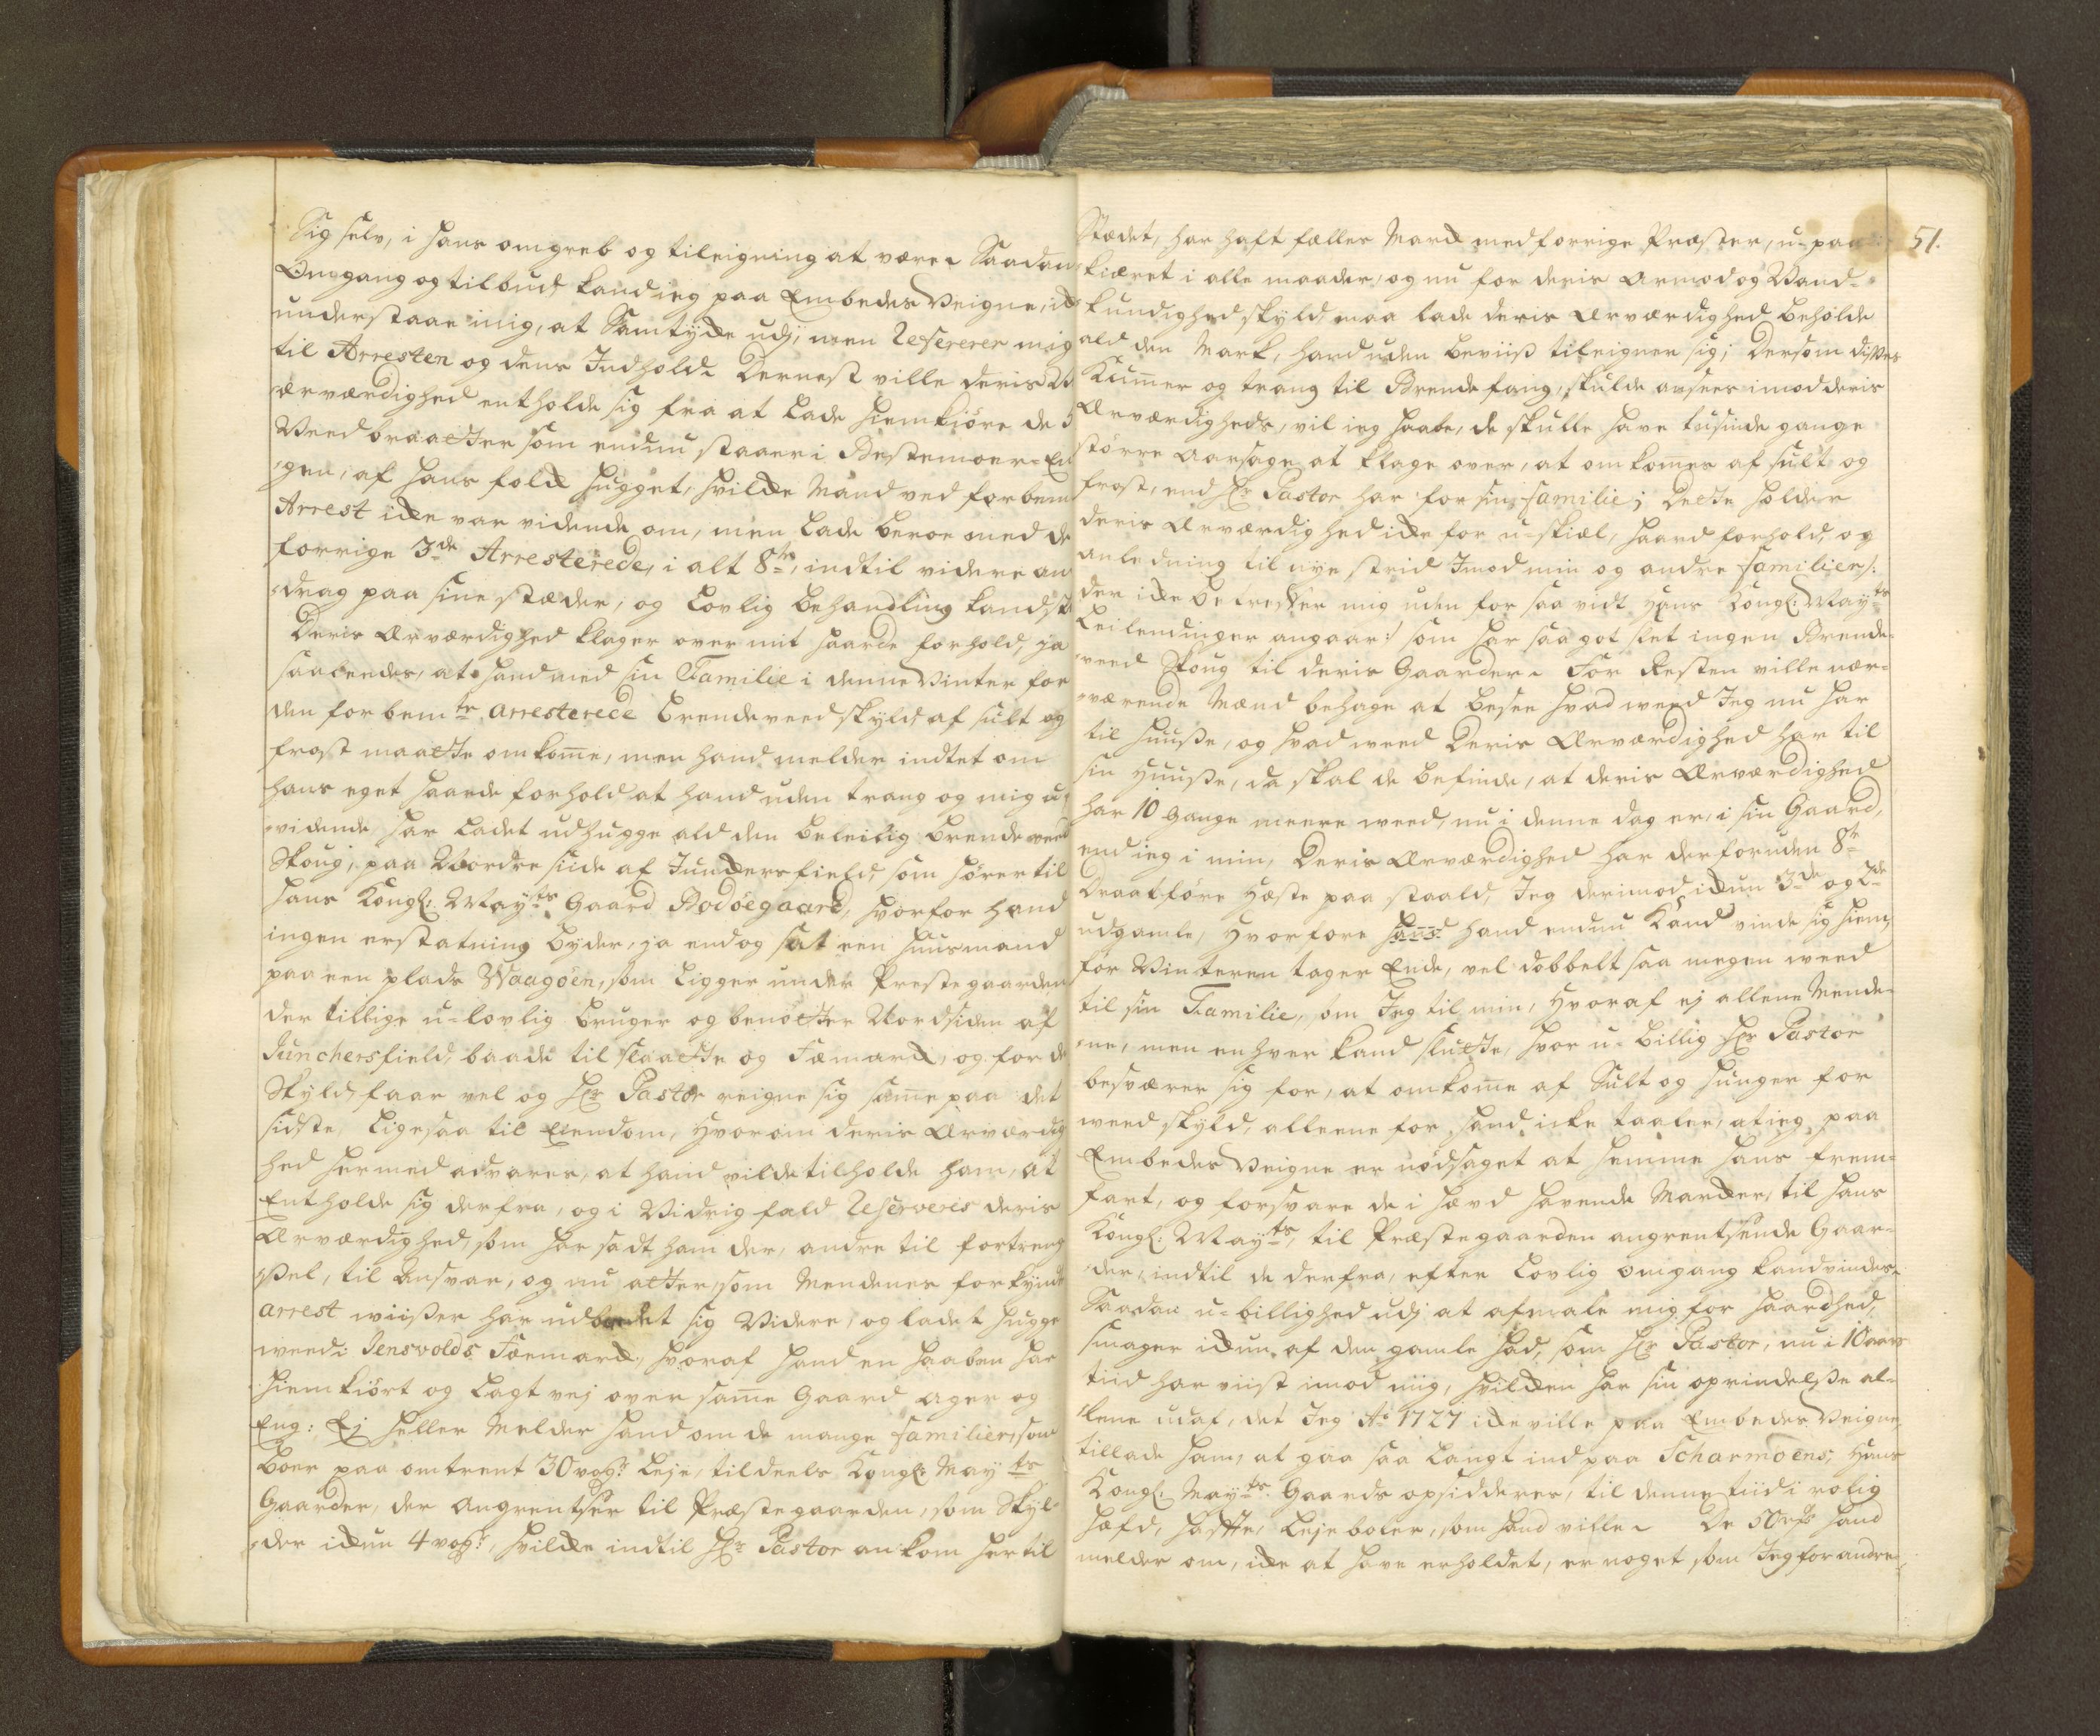 Sig selv, i hans omgreb og tileigning at være. Saadan
Omgang og tilbud kand ieg paa Embedes Veigne, ick
understaae mig, at Samtyche udj, men Refererer mig
til Arresten og dens Indhold. Dernest ville deris W
ærværdighed entholde sig fra at lade hiemkiøre de 5
Veed braatter som endnu staaer i Bestemoer-En
gen, af hans folch hugget, hvilche Mand ved forbem
Arrest iche var vidende om, men lade beroe med de
forrige 3de Arresterede, i alt 8te, indtil videre an
drag paa sine stæder, og Lovlig behandling kand sk
Deris Ærværdighed klager over mit haarde forhold, ja
saaledes, at hand med sin Familie i denne Vinter for
den forbemte arresterede brendeveed skyld af sult og
frost maatte omkome, men hand melder indtet om
hans eget haarde forhold at hand uden trang og mig u
vidende har ladet udhugge ald den beleilig brendeveed
Skoug, paa Nordre siide af Junchersfield, som hører til
Hans Kongl: Mayts Gaard Bodøegaard, hvorfor hand
ingen erstatning byder, ja endog sat een huusmand
paa een plads Waagøen, som ligger under Prestegaarden
der tillige u-lovlig bruger og benøtter Nordsiden af
Junchersfield, baade til slaatte og Fæmarch, og for de
Skyld, faar vel og Hr Pastor reigne sig same paa det
sidste, ligesaa til Eiendom, hvorom deris Ærværdig
hed hermed advares, at hand vilde tilholde ham, at
Entholde sig derfra, og i Vidrig fald Reserveris deris
Ærværdighed, som har sadt ham der, andre til fortreng
ssel, til Ansvar, og nu atter, som Mendenes forkynde
arrest wiisser har udbredet sig Videre, og ladet hugge
weed i Jensvolds Fæmarch, hvoraf hand en haaben har
hiemkiørt og lagt vej over same Gaard ager og
Eng: Ej heller Melder hand om de mange familier, som
boer paa omtrent 30 vog: leje, tildeels Kongl: Mayts
Gaarder, der angrentser til Præstegaarden, som Skyl
der ichun 4 vog:, hvilche indtil Hr Pastor ankom hertil
51.
Stædet, har haft fælles March med forrige Præster, u-paa
kiæret i alle maader, og nu for deris armod og Vand-
kundighed skyld, maa lade deris Ærværdighed beholde
ald den Mark, hand uden beviiss tileigner sig; Dersom disses
Kumer og trang til Brendefang, skulde ansees imod deris
Ærværdigheds, vil ieg haabe, de skulle have tusinde gange
større aarsage at klage over, at omkomes af sult og
frost, end Hr Pastor har for sin familie; Dette holder
deris Ærværdighed iche for u-skiæl, haard forhold, og
anledning til nye strid Imod min og andre familier /:
der iche betreffer mig uden for saa vidt Hans Kongl: Mayts
Leilendinger angaar :/ som har saa got slet ingen Brende-
weed Skoug til deris Gaarder. For Resten ville nær-
værende Mænd behage at besee hvad weed Jeg nu har
til Huusse, og hvad weed Deris Ærværdighed har til
sin Huusse, da skal de befinde, at deris Ærværdighed
har 10 gange meere weed, nu i denne dag er, i sin Gaard,
end ieg i min, Deris Ærværdighed har derforuden 8te
Draatføre Heste paa staald, Jeg derimod ichun 3de og 2de
udgamle, Hvorfore hand endnu Kand vinde sig hiem
før Vinteren tager Ende, vel dobbelt saa megen weed
til sin Familie, som Jeg til min, Hvoraf ej allene Mende-
ne, men enhver kand slutte, hvor u-billig Hr Pastor
besværer sig for, at omkome af Sult og hunger for
weed skyld, alleene for hand icke taaler, at ieg paa
Embedes Veigne er nødsaget at hemme hans frem-
fart, og forsvare de i hævd havende Marcher, til Hans
Kongl: Mayts, til Præstegaarden angrentsende Gaar-
der, indtil de derfra, efter lovlig omgang kand vindes.
Saadan u-billighed udj at afmale mig for haardhed,
smager ichun af den gamle had, som Hr Pastor, nu i 10 aars
tiid har viist imod mig, hvilchen har sin oprindelsse al-
lene udaf, det Jeg Ao 1727 iche ville paa Embedes Veigne,
tillade ham, at gaa saa langt ind paa Scharmoens, Hans
Kongl: Mayts Gaards opsidderes, til denne tiid i rolig
hæfd, hafte, lejeboler, som hand ville. De 50 rdr hand
melder om, iche at have erholdet, er noget som Jeg for andre-